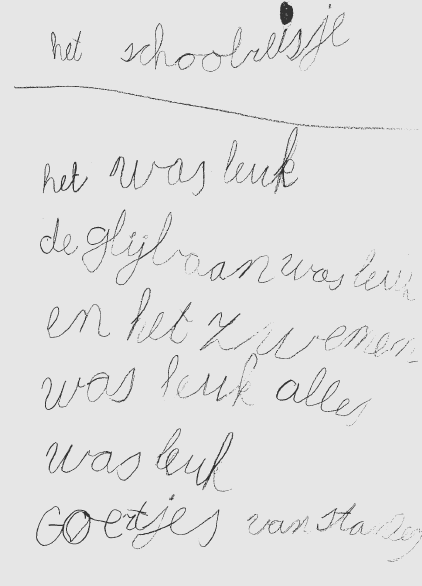 het schoolreisje
het was leuk
de glijbaan was leuk
en het zwemen
was leuk alles
was leuk
Goertjes van